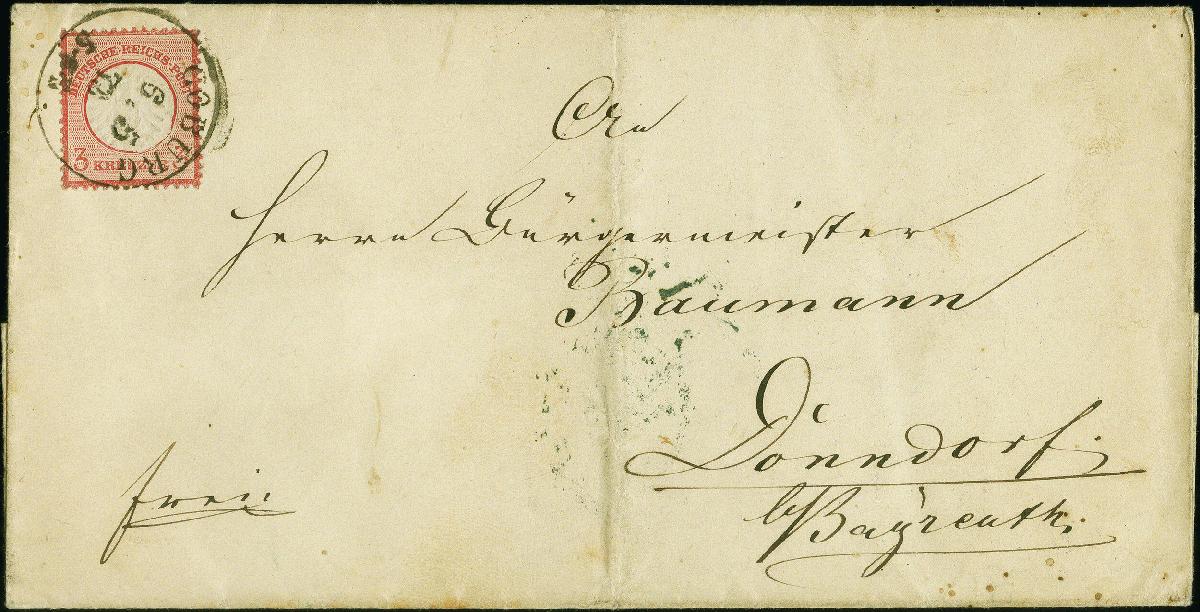 DEUTSCHE REICHS-POST
3 KREUZER
COBURG
An
Herrn Bürgermeister
Baumann
Donndorf.
b/Bayreuth.
frei.